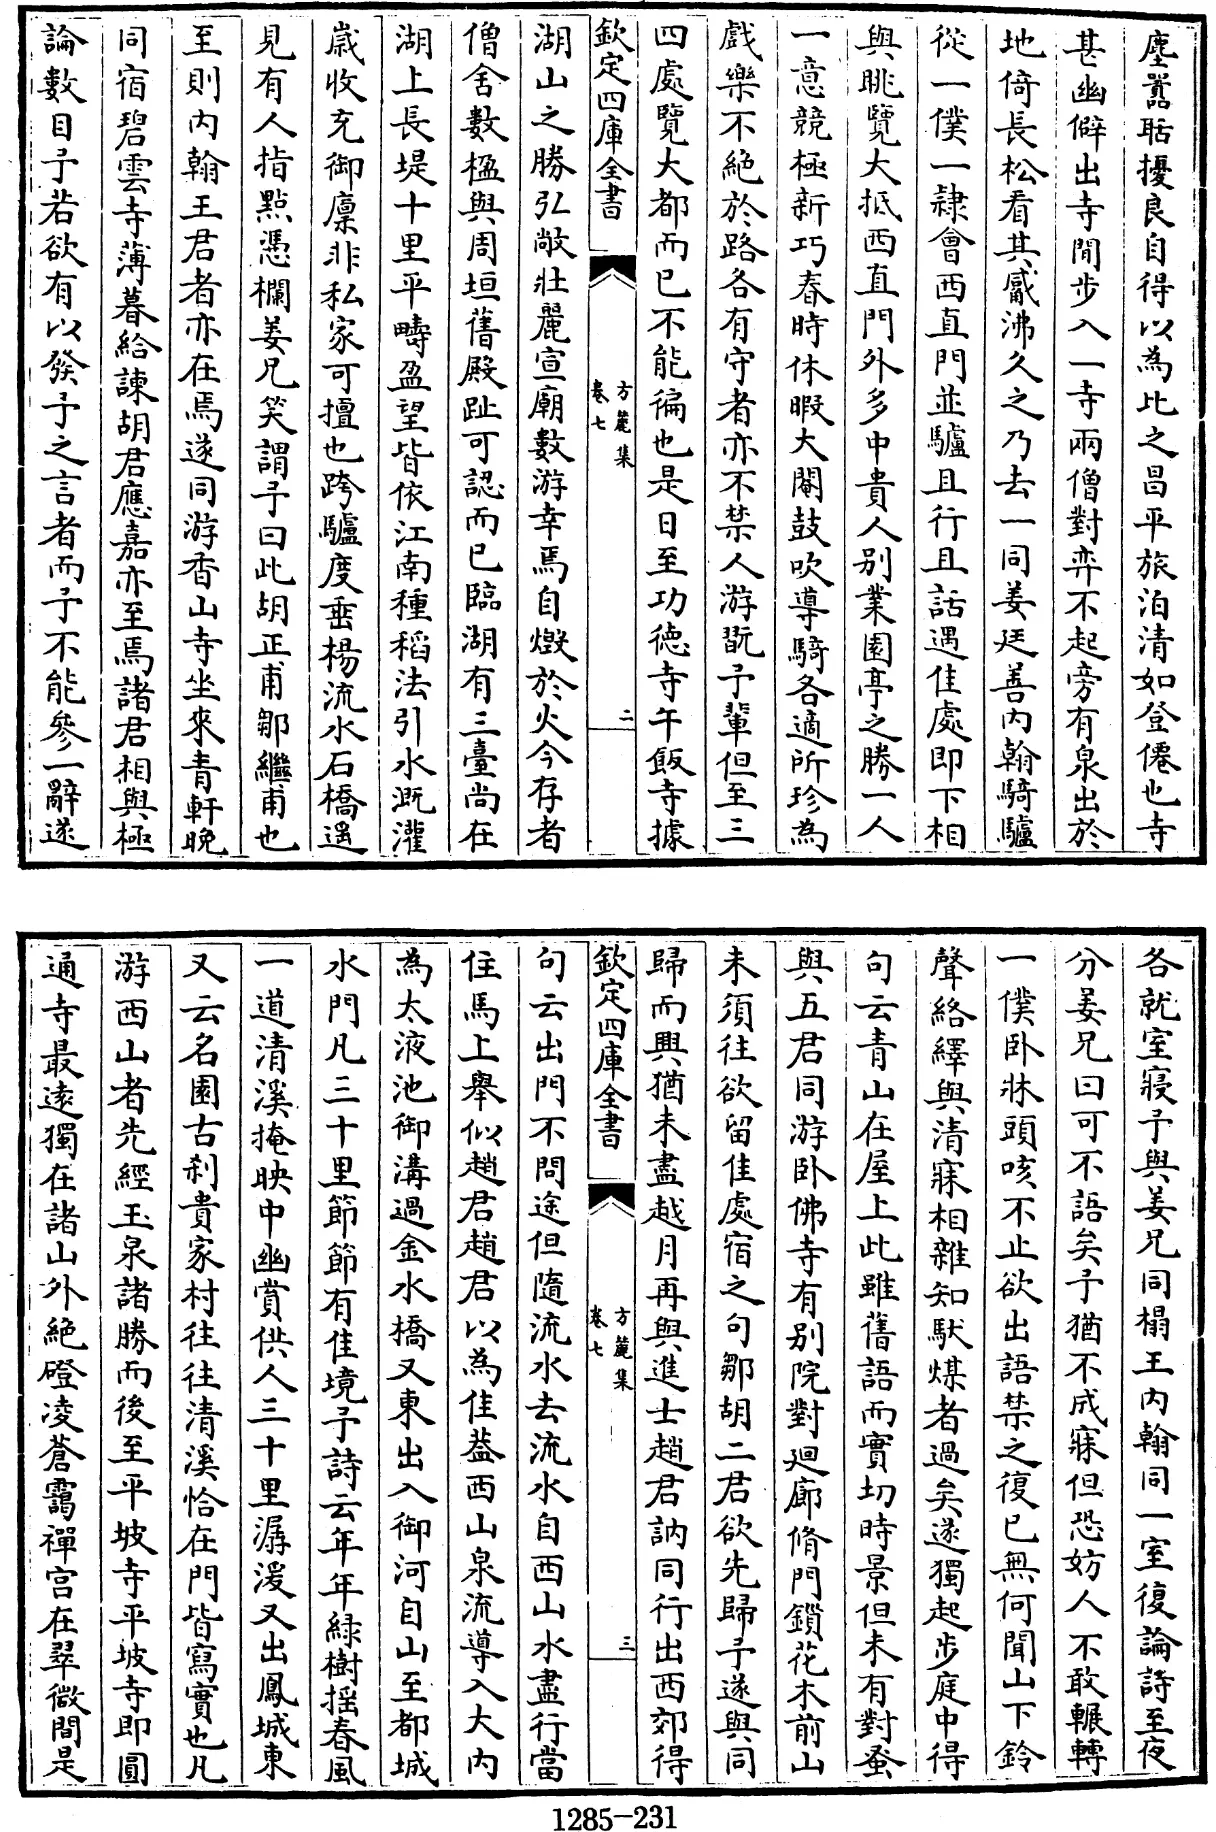 塵囂聒擾良自得以為比之昌平旅泊清如登僊也寺
甚幽僻出寺閒步入一寺兩僧對弈不起旁有泉出於
地倚長松看其觱沸久之乃去一同姜廷善内翰騎驢
從一僕一隷會西直門並驢且行且話遇佳處即下相
與眺覽大抵西直門外多中貴人别業園亭之勝一人
一意競極新巧春時休暇大閹鼓吹導騎各適所珍為
戲樂不絶於路各有守者亦不禁人游翫予輩但至三
四處覽大都而已不能徧也是日至功徳寺午飯寺據
欽定四庫全書
方麓集
卷七
二
湖山之勝弘敞壯麗宣廟數游幸焉自燬於火今存者
僧舍數楹與周垣舊殿趾可認而已臨湖有三臺尚在
湖上長堤十里平疇盈望皆依江南種稻法引水溉灌
歲收充御廩非私家可擅也跨驢度垂楊流水石橋遥
見有人指㸃憑欄姜兄笑謂予曰此胡正甫鄒繼甫也
至則内翰王君者亦在焉遂同游香山寺坐來青軒晩
同宿碧雲寺薄暮給諫胡君應嘉亦至焉諸君相與極
論數目予若欲有以發予之言者而予不能參一辭遂
各就室寢予與姜兄同榻王内翰同一室復論詩至夜
分姜兄曰可不語矣予猶不成寐但恐妨人不敢輾轉
一僕卧牀頭咳不止欲出語禁之復已無何聞山下鈴
聲絡繹與清寐相雜知馱煤者過矣遂獨起步庭中得
句云青山在屋上此雖舊語而實切時景但未有對蚤
與五君同游卧佛寺有别院對廻廊脩門鎖花木前山
未須往欲留佳處宿之句鄒胡二君欲先歸予遂與同
歸而興猶未盡越月再與進士趙君訥同行出西郊得
欽定四庫全書
方麓集
卷七
三
句云出門不問途但隨流水去流水自西山水盡行當
住馬上舉似趙君趙君以為佳葢西山泉流導入大内
為太液池御溝過金水橋又東出入御河自山至都城
水門凡三十里節節有佳境予詩云年年緑樹揺春風
一道清溪掩映中幽賞供人三十里潺湲又出鳳城東
又云名園古刹貴家村往往清溪恰在門皆寫實也凡
游西山者先經玉泉諸勝而後至平坡寺平坡寺即圓
通寺最逺獨在諸山外絶磴凌蒼靄禪宫在翠微間是
1285-231